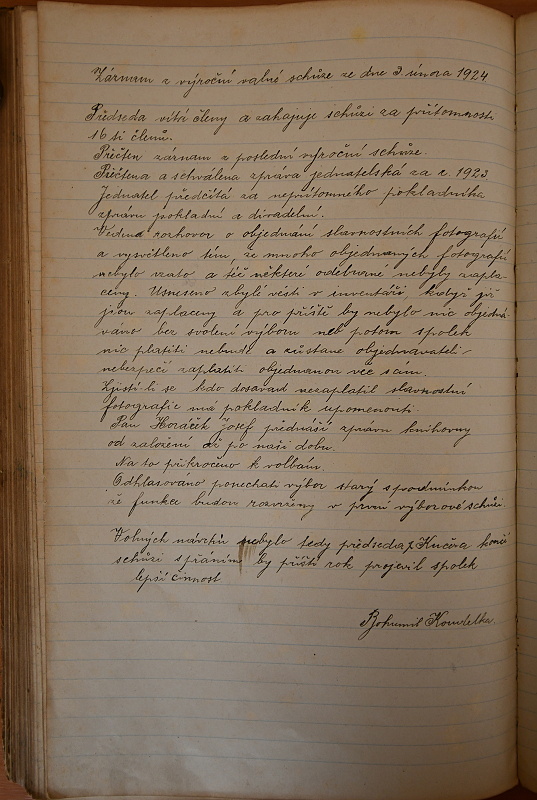 Záznam z výroční valné schůze ze dne 3. února 1924
Předseda vítá členy a zahajuje schůzi za přítomnosti
16 ti členů.
Přečten záznam z poslední výroční schůze.
Přečtena a schválena zpráva jednatelská za r. 1923
Jednatel předčítá za nepřítomného pokladníka
zprávu pokladní a divadelní.
Veden rozhovor o objednání slavnostních fotografií
a vysvětleno tím, že mnoho objednaných fotografií
nebylo vzato a též některé odebrané nebyly zapla-
ceny. Usneseno zbylé vésti v inventáři, když již
jsou zaplaceny a pro příště by nebylo nic objedná-
váno bez svolení výboru neb potom spolek
nic platiti nebude a zůstane objednavateli
nebezpečí zaplatiti objednanou věc sám.
Zjistí-li se kdo dosavad nezaplatil slavnostní
fotografie má pokladník upomenouti.
Pan Horáček Josef přednáší zprávu knihovny
od založení až po naši dobu.
Na to přikročeno k volbám.
Odhlasováno ponechati výbor starý s podmínkou
že funkce budou rozvrženy v první výborové schůzi.
Volných návrhů nebylo tedy předseda J. Kučera končí
schůzi s přáním by příští rok projevil spolek
lepší činnost
Bohumil Koudelka.